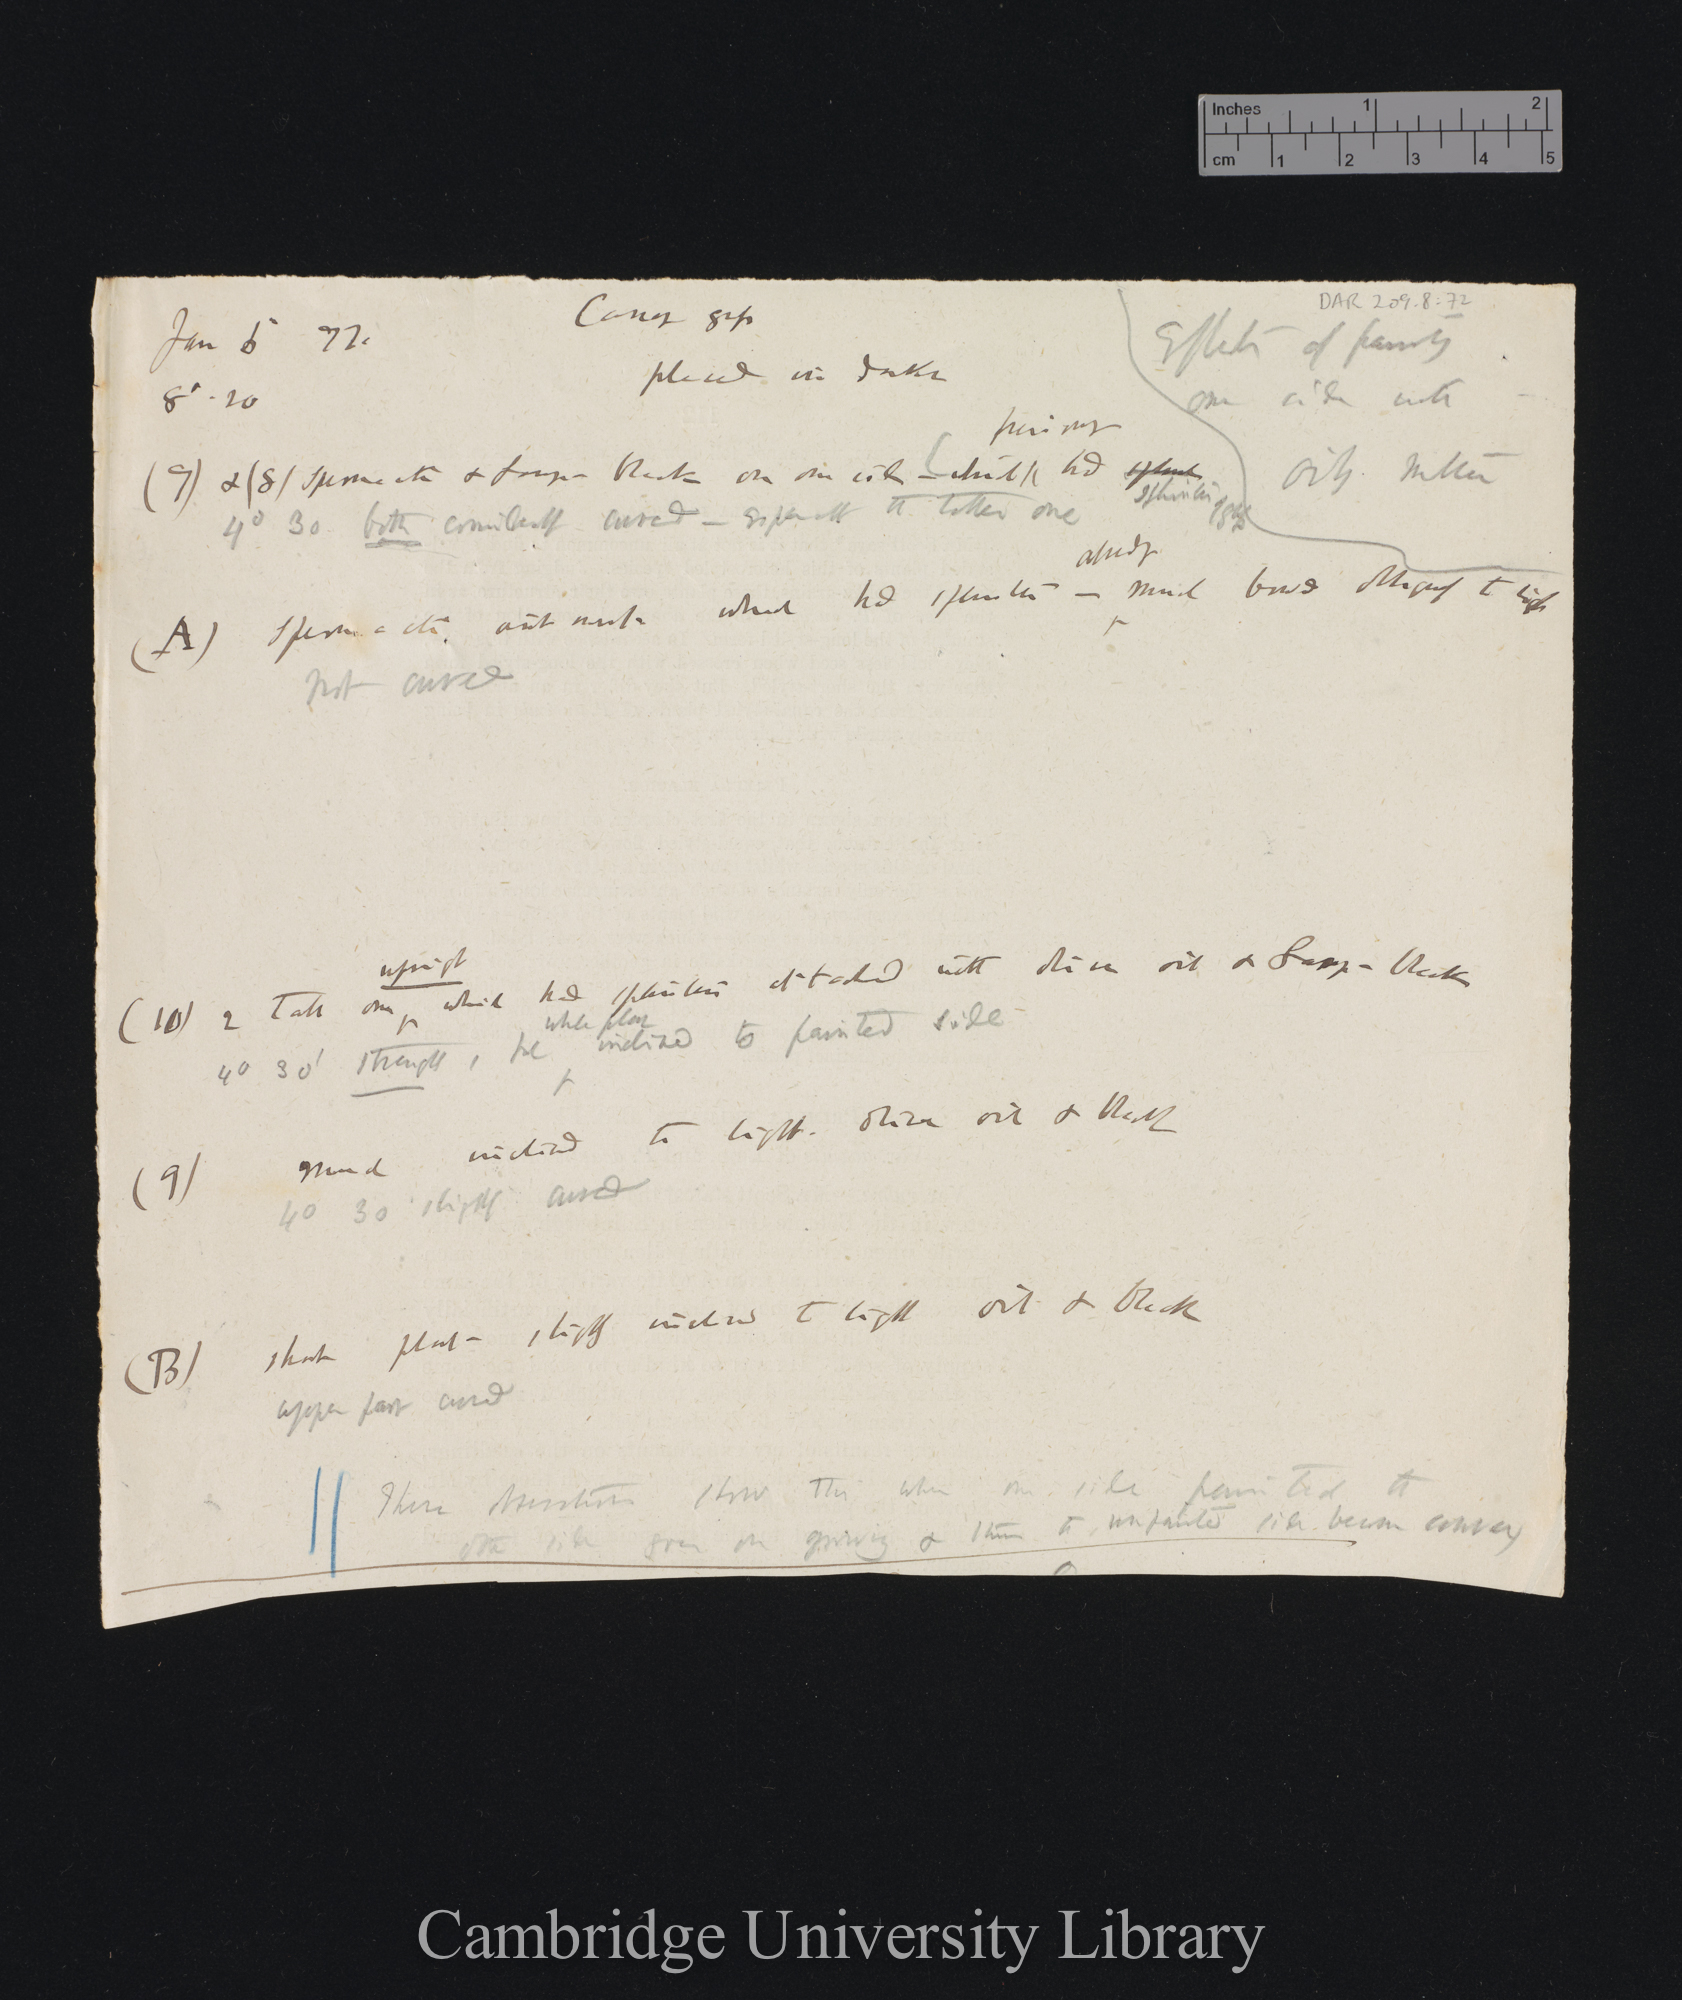 Inches 1 2
cm 1 2 3 4 5
DAR 209.8:72
Jan 5 77.
Canary grass
Effects of painting
8° . 20
placed in dark
one side with
oily matter
previously
(7) & (8) Spermaceti & Lamp-black on one side — which had
splinters of glass
4° 30 both considerably curved — especially the taller one
already
(A) Spermaceti, which had splinter — much bowed obliquely to light
Not curved
upright
(10) 2 tall one, which had splinters attached with olive oil & Lamp-black
whole plant
4° 30' straight, inclined to painted side
(9) much inclined to light. olive oil & black
4° 30 slightly curved
(B) short plant slightly inclined to light oil & black
upper part curved
These observations show that when one side painted the
other side goes on growing & thus the unpainted side become convex
Cambridge University Library